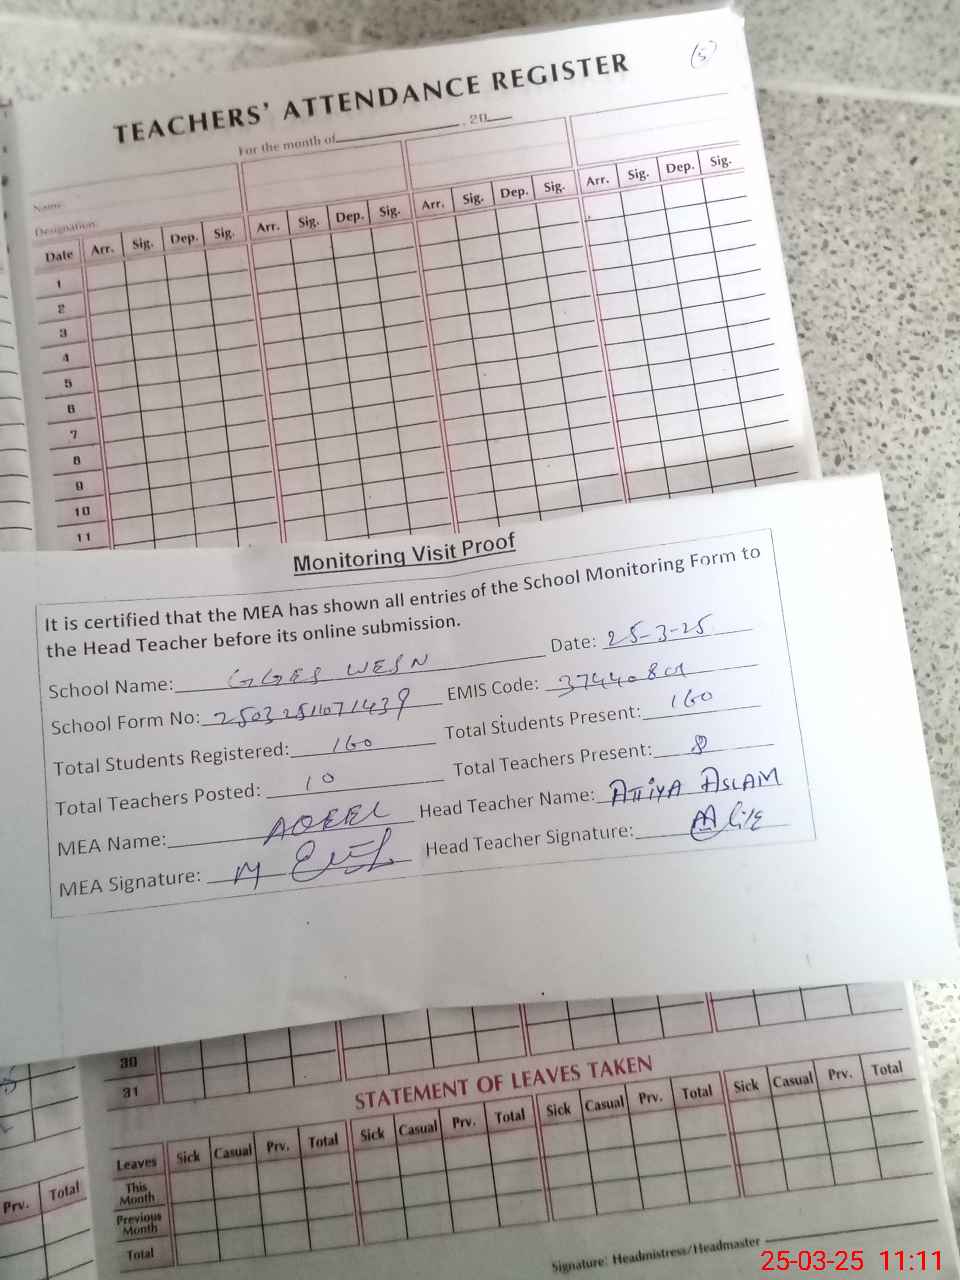 (5)
TEACHERS' ATTENDANCE REGISTER
For the month of , 20
Name:
Designation:
Date Arr. Sig. Dep. Sig. Arr. Sig. Dep. Sig. Arr. Sig. Dep. Sig. Arr. Sig. Dep. Sig.
1
2
3
4
5
6
7
8
9
10
11
Monitoring Visit Proof
It is certified that the MEA has shown all entries of the School Monitoring Form to
the Head Teacher before its online submission.
School Name: GGES WESN Date: 25-3-25
School Form No: 25032511071439 EMIS Code:
Total Students Registered: 160 Total Students Present: 160
Total Teachers Posted: 10 Total Teachers Present: 8
MEA Name: AQEEL Head Teacher Name: ATTIYA ASLAM
MEA Signature: Head Teacher Signature:
30
31
STATEMENT OF LEAVES TAKEN
Leaves Sick Casual Prv. Total Sick Casual Prv. Total Sick Casual Prv. Total Sick Casual Prv. Total
This Month
Previous Month
Total
Prv. Total
Signature: Headmistress/Headmaster
25-03-25 11:11